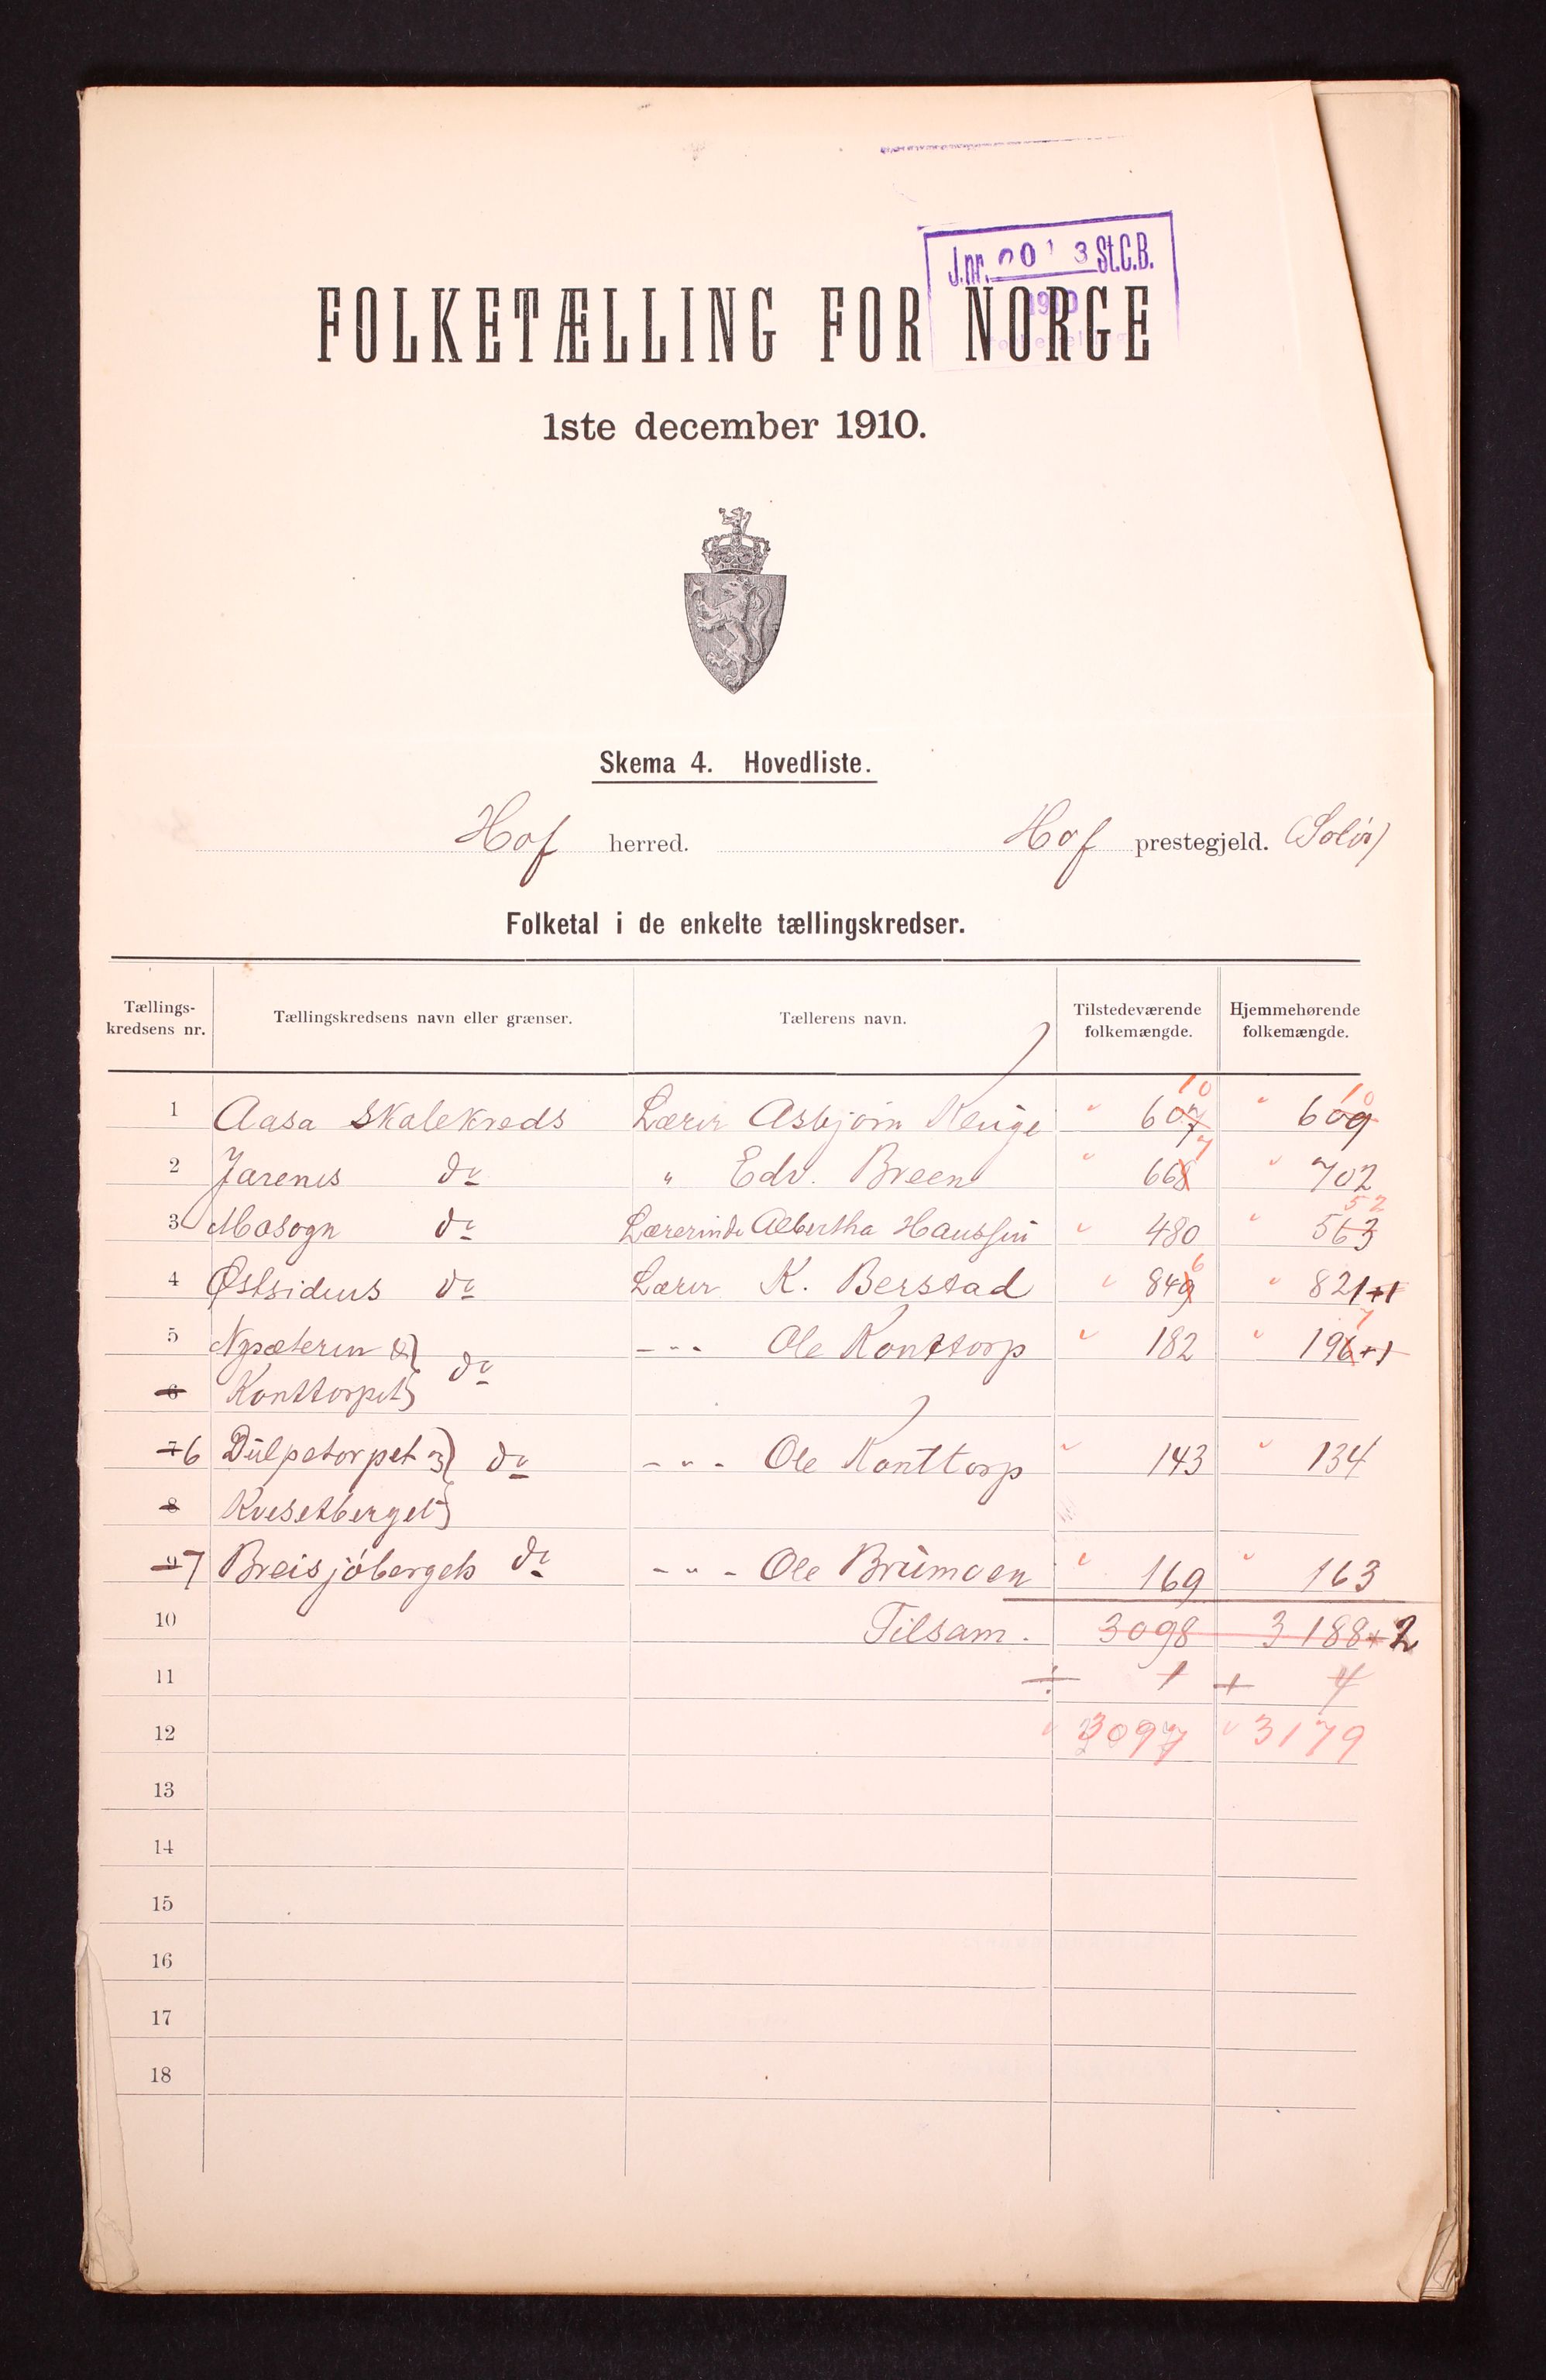 J.nr. 00 3 St.C.B.
1910
FOLKETÆLLING FOR NORGE
1ste december 1910.
Skema 4. Hovedliste.
Hof herred. Hof prestegjeld. (Solør)
Folketal i de enkelte tællingskredser.
Tællings-kredsens nr. Tællingskredsens navn eller grænser. Tællerens navn. Tilstedeværende folkemængde. Hjemmehørende folkemængde.
10 10
1 Aasa Skolekreds Lærer Asbjørn 607 609
7
2 Jarenes do " Edv. Breen 668 702
52
3 Masogn do Lærerinde Albertha Haussen 480 563
6
4 Østsidens do Lærer K. Berstad 849 821+1
7
5 Nysæteren & do - " - Ole Konttorp 182 196+1
6 Konttorpet
7 6 Dulpetorpet og do - " - Ole Konttorp 143 134
8 Kvesetberget
9 7 Breisjøbergets do - " - Ole Brumoen 169 163
10 Tilsam. 3098 3188+2
11 ÷ 1 + 4
12 3097 3179
13
14
15
16
17
18